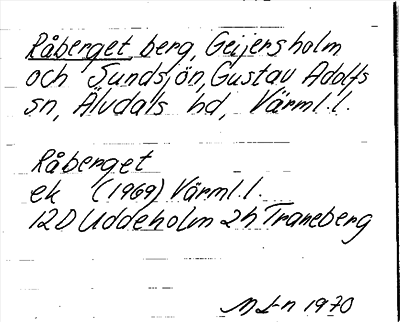 Råberget berg, Geijersholm
och Sundsjön, Gustav Adolfs
sn, Älvdals hd, Värml.l.
Råberget
ek (1969) Värml.l.
12D Uddeholm 2h Traneberg
1970